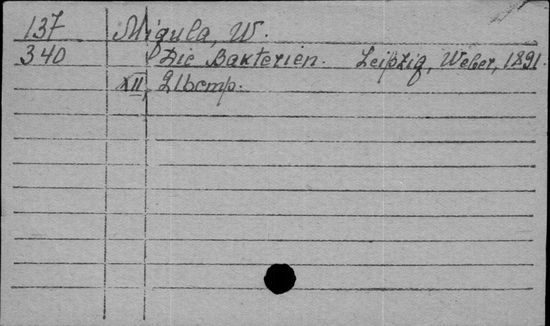 137 Migula, W.
340 Die Bakterien. Leipzig, Weber, 1891.
XII, 216 стр.